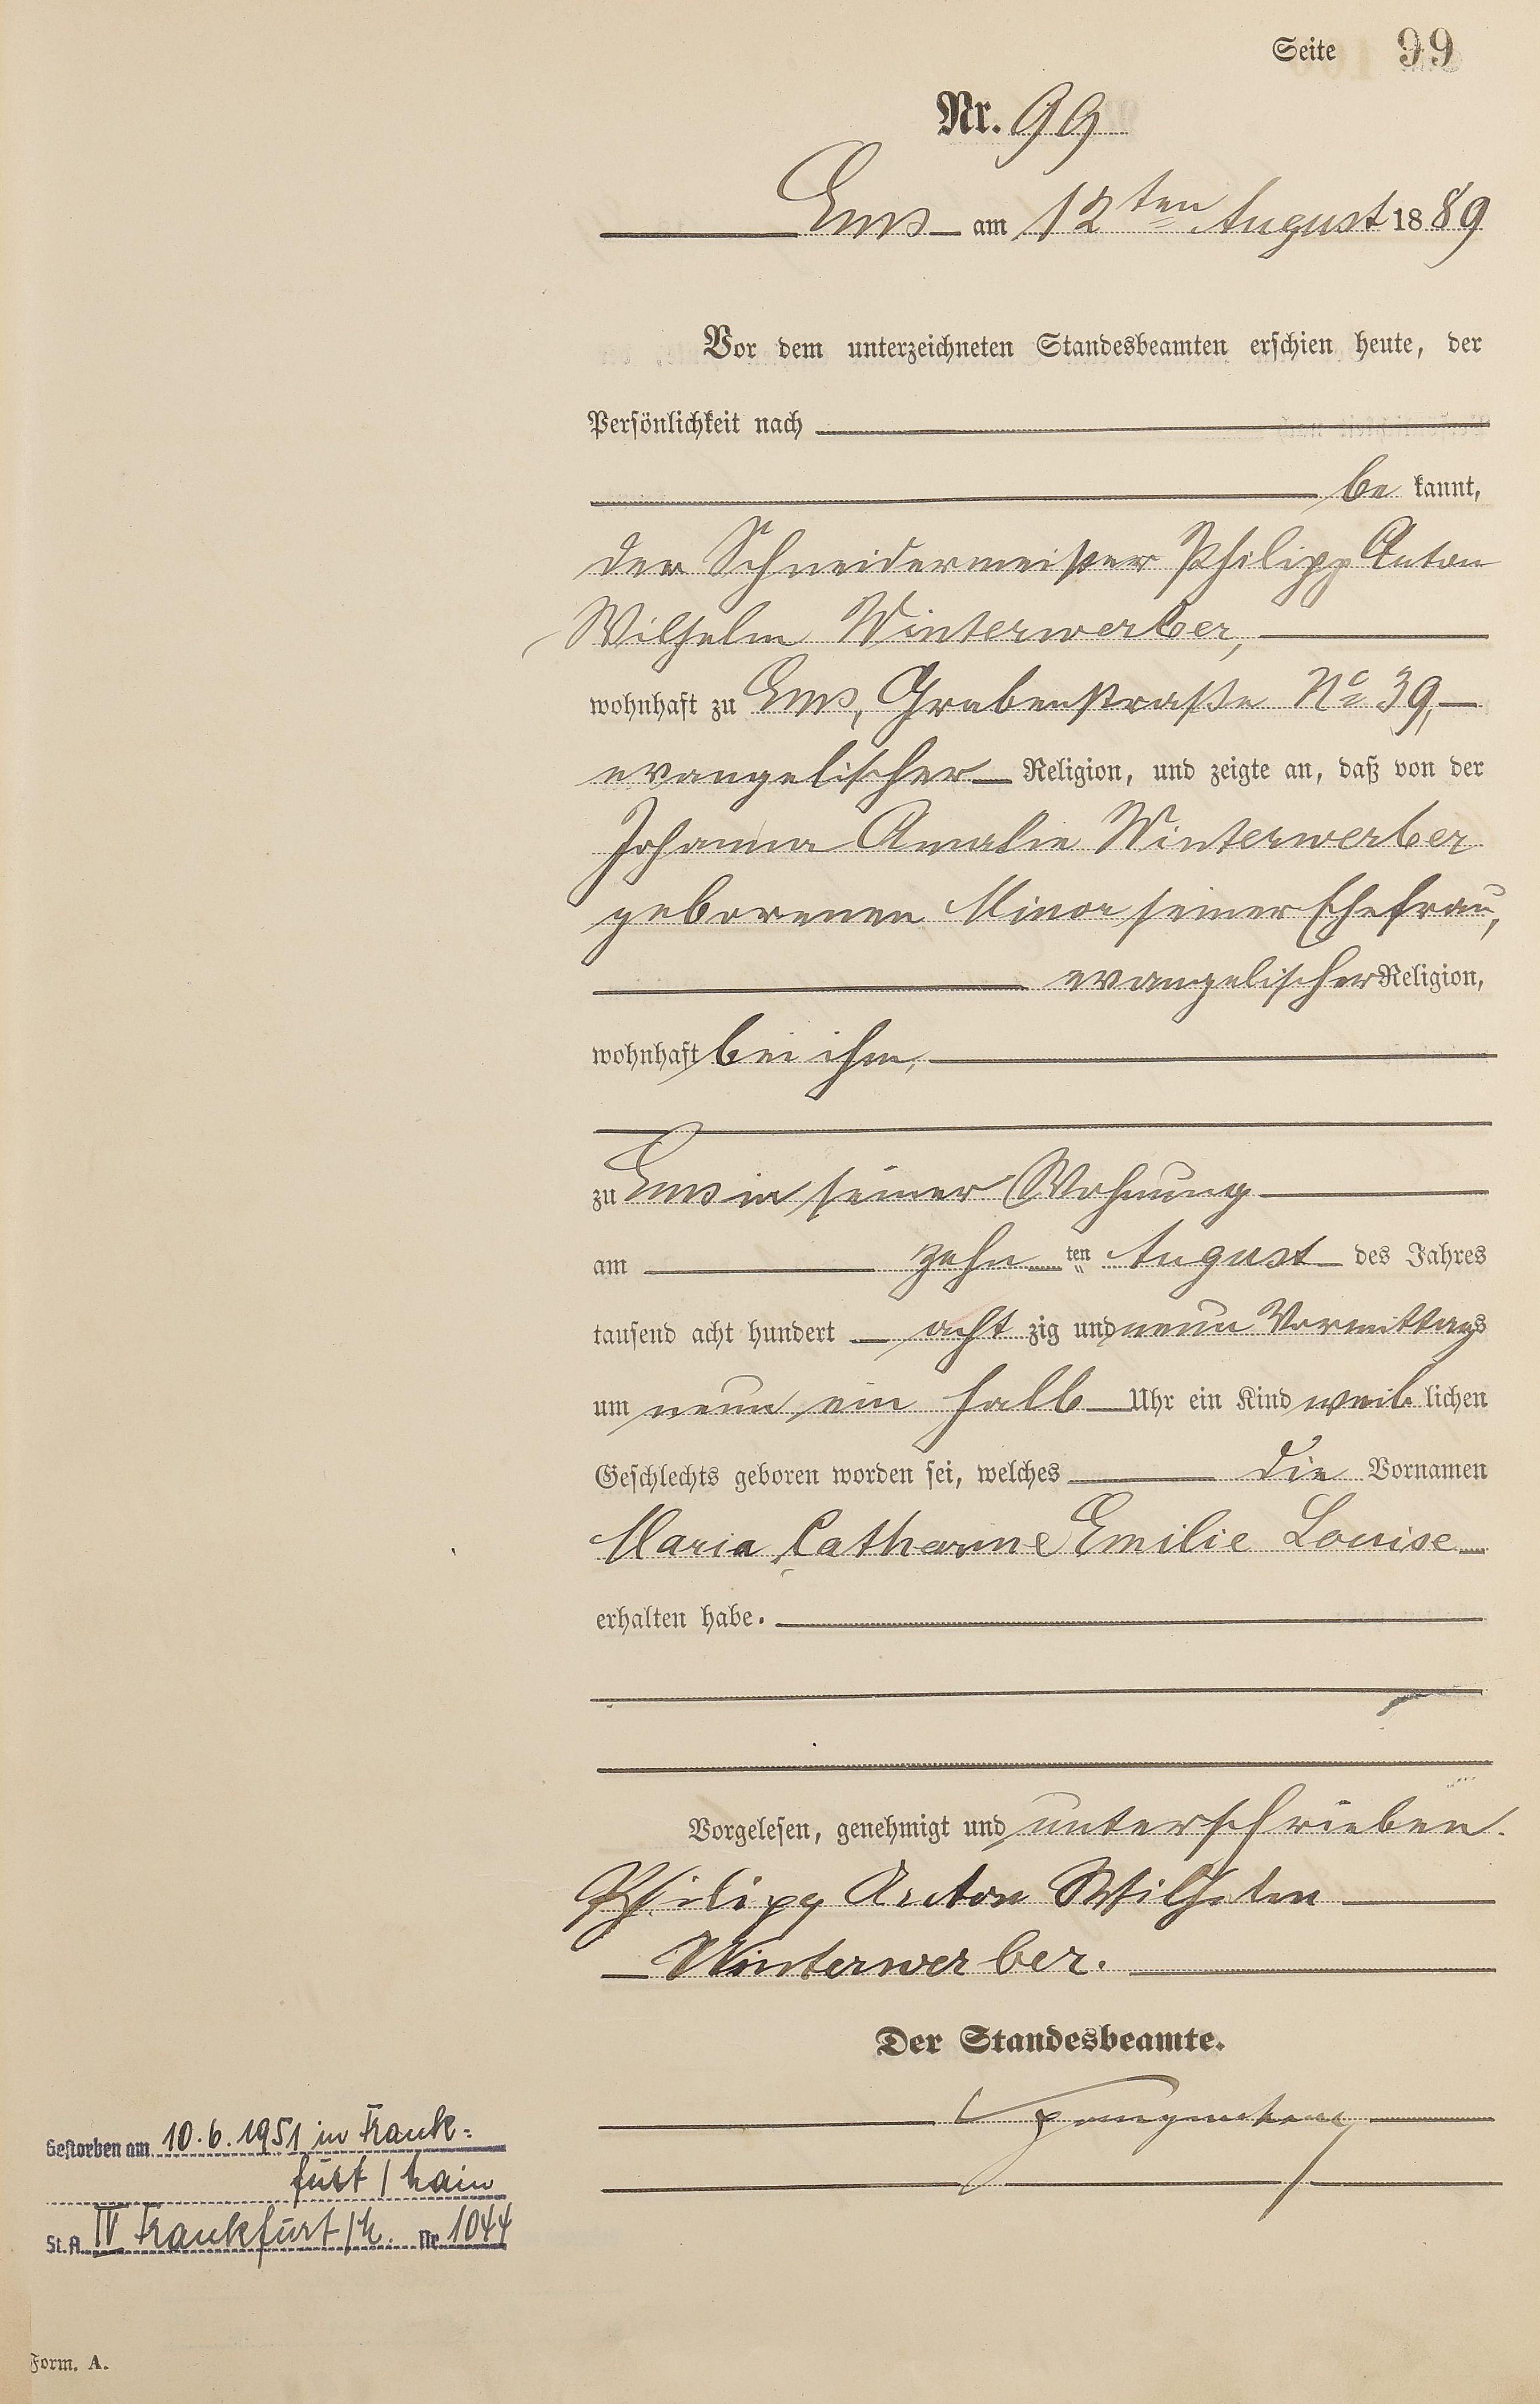 Seite 99
Nr. 99
Ems am 12ten August 1889
Vor dem unterzeichneten Standesbeamten erschien heute, der
Persönlichkeit nach
be kannt,
der Schneidermeister Philipp Anton
Wilhelm Winterwerber,
wohnhaft zu Ems, Grabenstraße No 39,
evangelischer Religion, und zeigte an, daß von der
Johanna Amalie Winterwerber
geborenen Minor seiner Ehefrau,
evangelischer Religion,
wohnhaft bei ihm,
zu Ems in seiner Wohnung
am zehn ten August des Jahres
tausend acht hundert acht zig und neun Vormittags
um neun ein halb Uhr ein Kind weib lichen
Geschlechts geboren worden sei, welches die Vornamen
Maria Catharine Emilie Louise
erhalten habe.
Vorgelesen, genehmigt und unterschrieben.
Philipp Anton Wilhelm
Winterwerber.
Der Standesbeamte.
Gestorben am 10.6.1951 in Frank=
furt / Main
St. A. IV Frankfurt / M. Nr. 1044
Form. A.